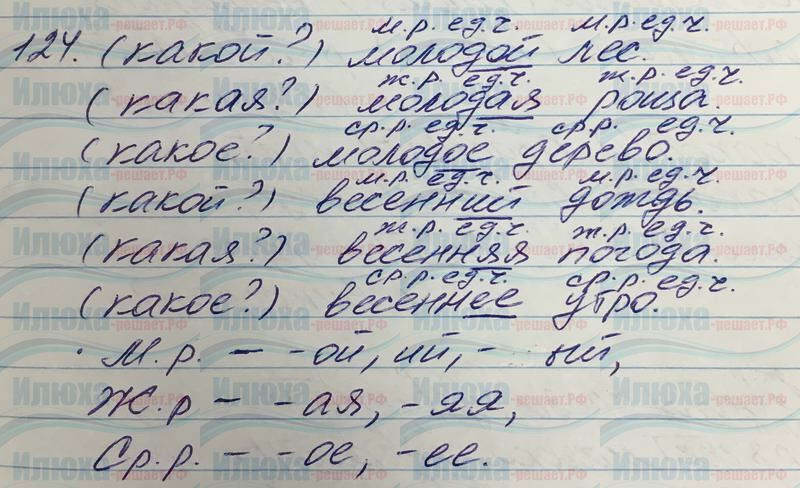 м.р. ед.ч. м.р. ед.ч.
124. (какой?) молодой лес.
ж.р. ед.ч. ж.р. ед.ч.
(какая?) молодая роща.
ср.р. ед.ч. ср.р. ед.ч.
(какое?) молодое дерево.
м.р. ед.ч. м.р. ед.ч.
(какой?) весенний дождь.
ж.р. ед.ч. ж.р. ед.ч.
(какая?) весенняя погода.
ср.р. ед.ч. ср.р. ед.ч.
(какое?) весеннее утро.
М.р. – -ой, ий, - ый,
Ж.р – -ая, -яя,
Ср.р. – -ое, -ее.